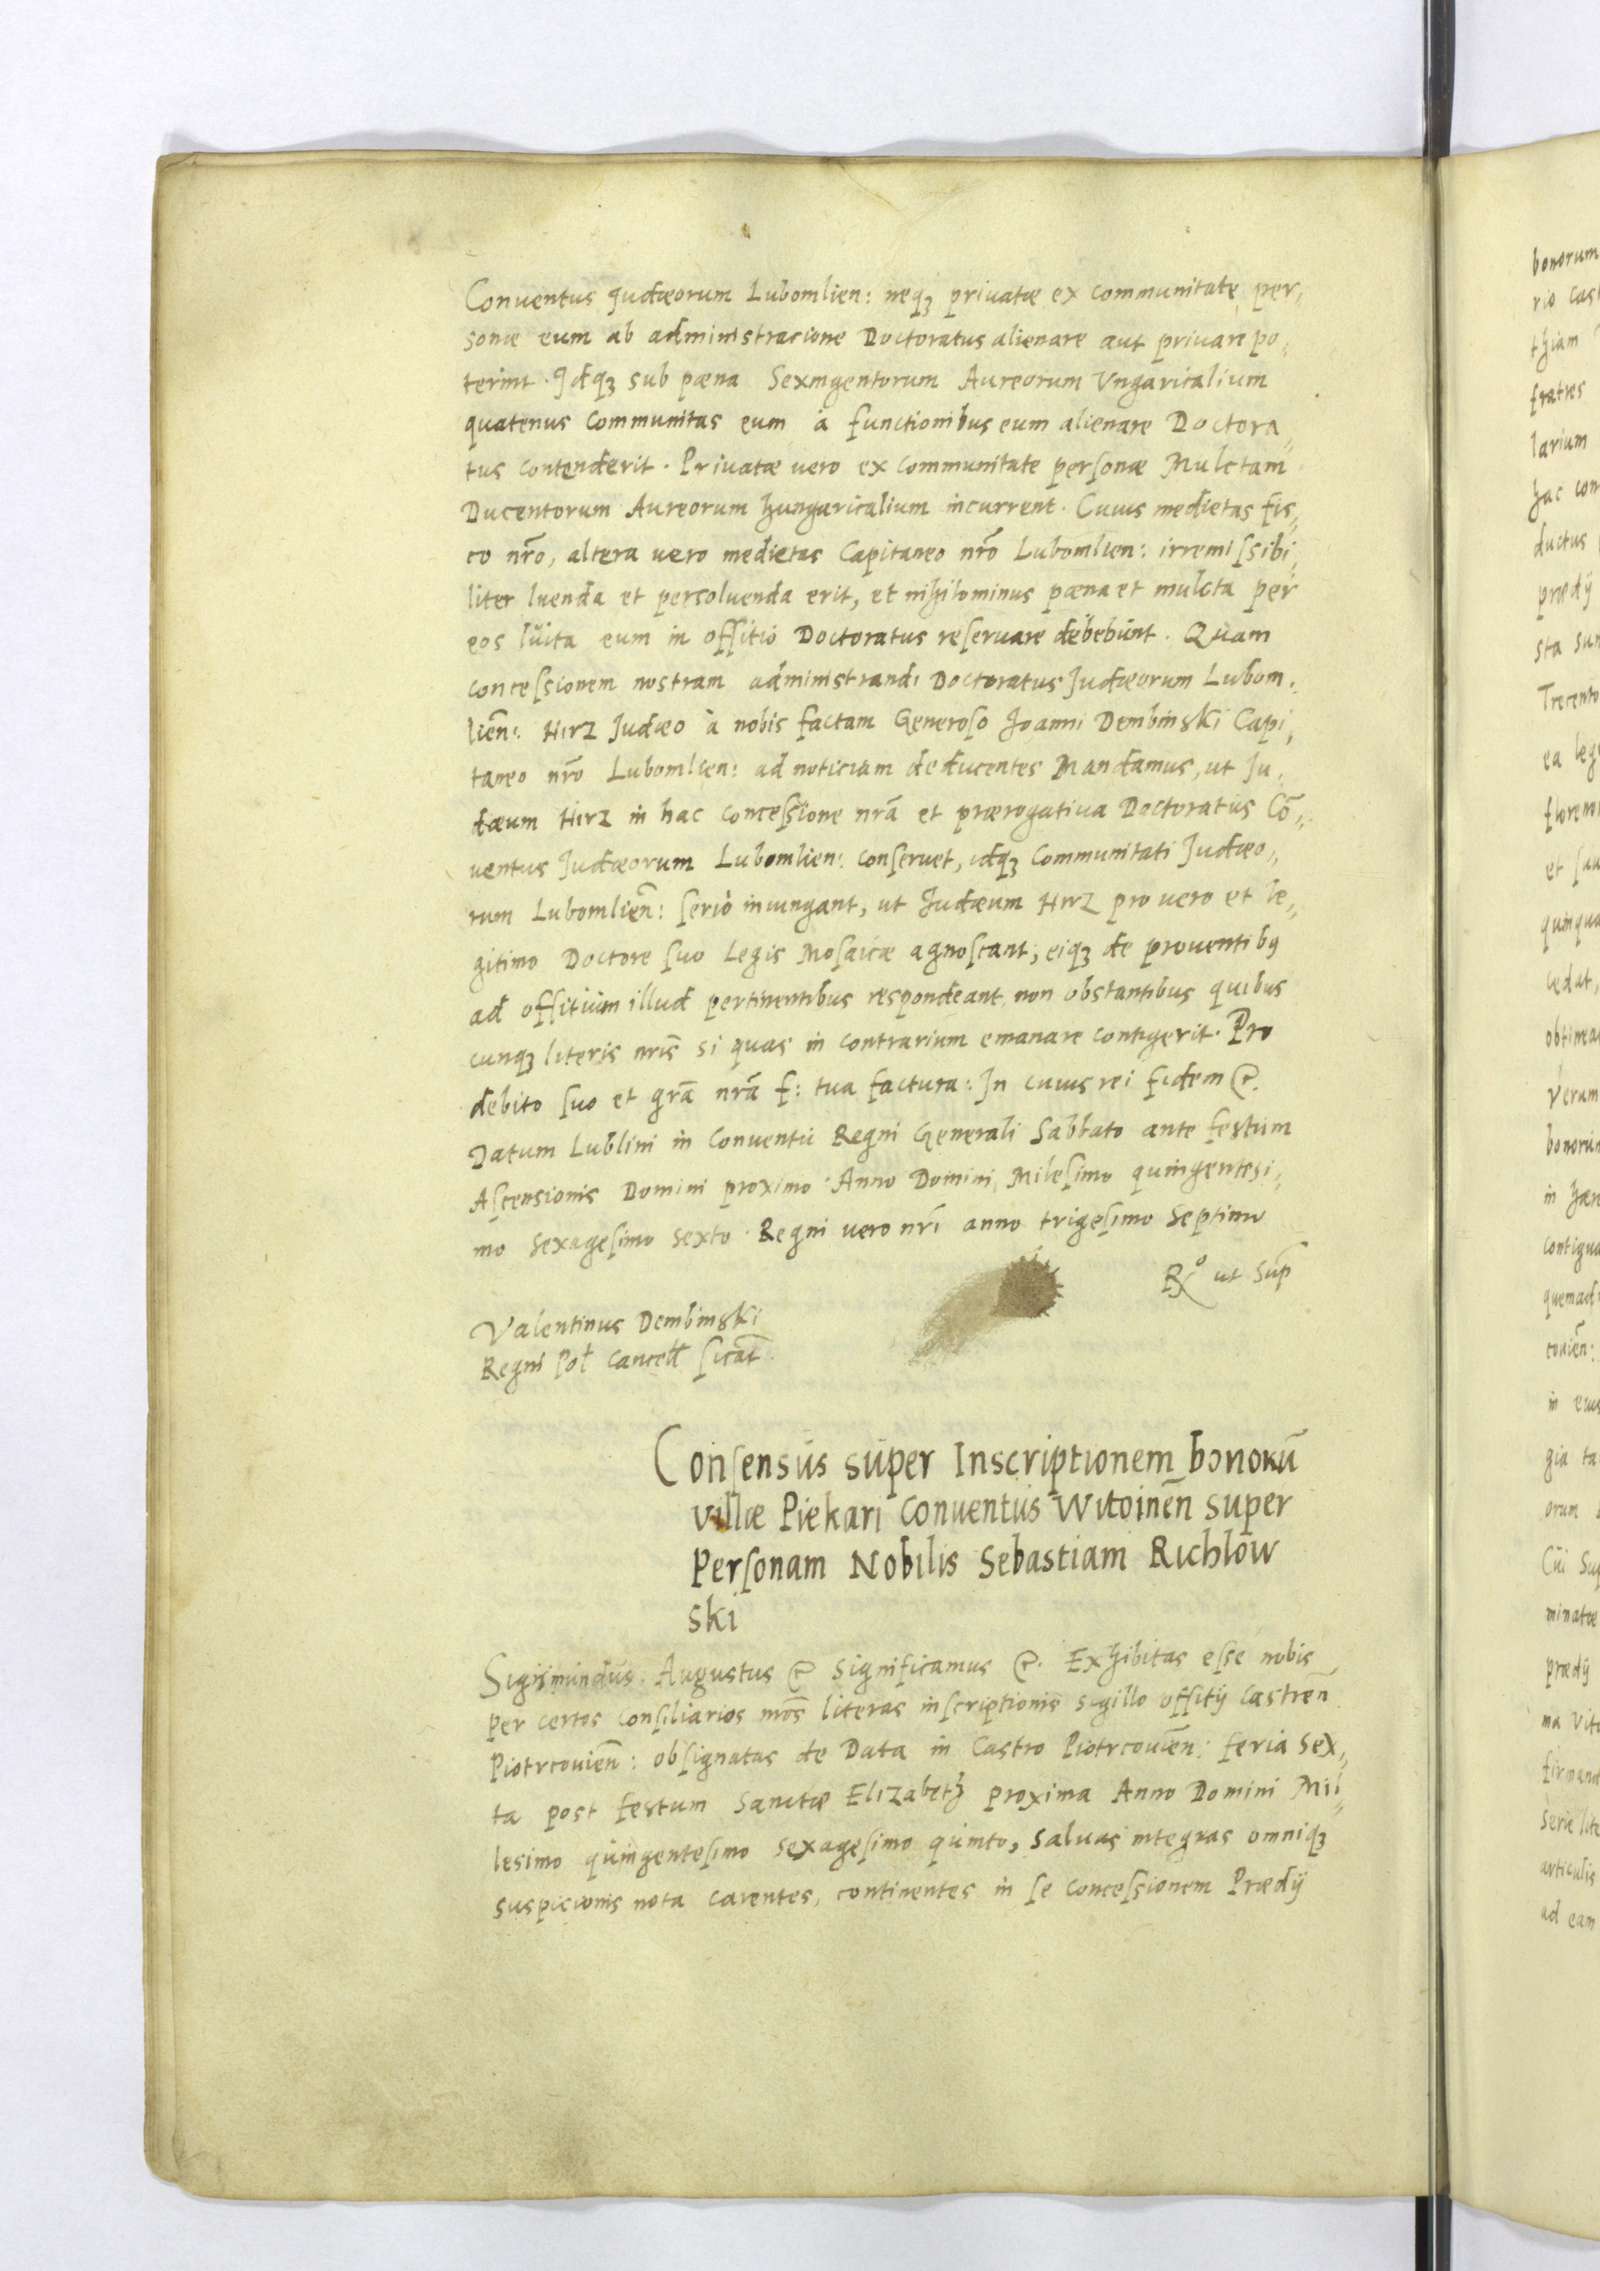 Conuentus Judæorum Lubomlien: neqꝫ priuatæ ex communitate per,
sonæ eum ab administracione Doctoratus alienare aut priuare po,
terint. Idqꝫ sub pæna Sexingentorum Aureorum Vngaricalium
quatenus communitas eum à functionibus eum alienare Doctora,,
tus contenderit. Priuatæ vero ex communitate personæ Mulctam
Ducentorum Aureorum hungaricalium incurrent. Cuius medietas fis,
co nr̃o, altera vero medietas Capitaneo nr̃o Lubomlien: irremissibi,
liter luenda et persoluenda erit, et nihilominus pæna et mulcta per
eos luita eum in offitio Doctoratus reseruare debebunt. Quam
concessionem nostram administrandi Doctoratus Judæorum Lubom,
lien̄: Hirz Judæo à nobis factam Generoso Joanni Dembinski Capi,
taneo nr̃o Lubomlien: ad noticiam deducentes Mandamus, ut Ju,
dæum Hirz in hac concessione nr̃a et prærogatiua Doctoratus Cō,,
uentus Judæorum Lubomlien: conseruet, idqꝫ Communitati Judæo,,
rum Lubomlien̄: seriò iniungant, ut Judæum Hirz pro vero et le,,
gitimo Doctore suo Legis Mosaicæ agnoscant, eiqꝫ de prouentibꝰ
ad offitium illud pertinentibus respondeant, non obstantibus quibus
cunqꝫ literis nr̃is si quas in contrarium emanare contigerit. Pro
debito suo et gr̃a nr̃a f: tua factura: In cuius rei fidem &.
Datum Lublini in Conuentu Regni Generali Sabbato ante festum
Ascensionis Domini proximo. Anno Domini Milesimo quingentesi,
mo sexagesimo sexto. Regni vero nr̃i anno trigesimo Septimo
Rx° ut Sup̄
Valentinus Dembinski
Regni Pol Cancell
Consensus super Inscriptionem bonorū
villæ Piekari Conuentus Witoinen̄ super
Personam Nobilis Sebastiam Richlow
ski
Sigismundus Augustus & Significamus &. Exhibitas esse nobis
per certos Consiliarios nr̃os literas inscriptionis sigillo offitij Castren̄
Piotrcouien̄: obsignatas de Data in Castro Piotrcouien̄: feria Sex,,
ta post festum Sanctæ Elizabeth proxima Anno Domini Mil,,
lesimo quingentesimo sexagesimo quinto, saluas integras omniqꝫ
suspicionis nota carentes, continentes in se concessionem Prædij